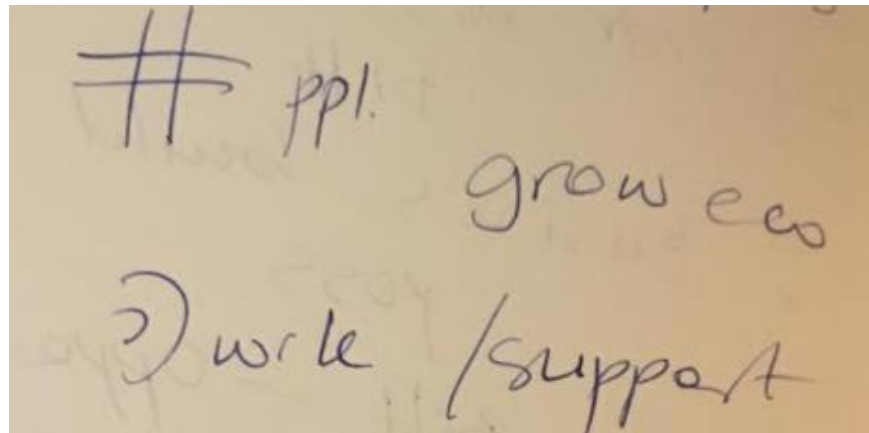 # ppl.
grow eco
work /support